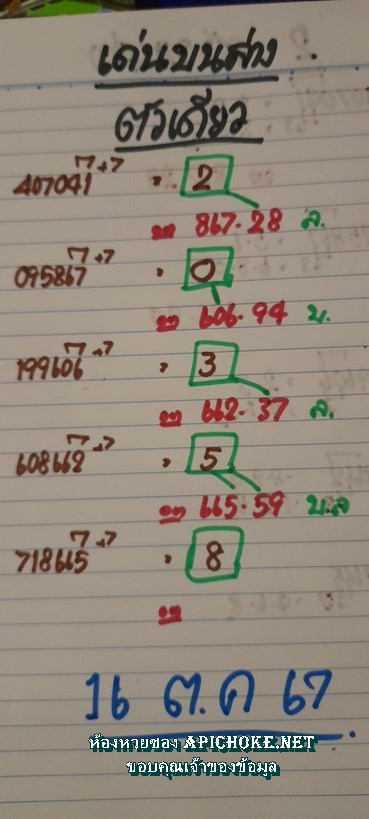 เด่นบนล่าง
ตัวเดียว
407041 7+7 = 2
ออก 867-28 ล.
095867 7+7 = 0
ออก 606-94 บ.
199606 7+7 = 3
ออก 662-37 ล.
608662 7+7 = 5
ออก 665-59 บ.ล
718665 7+7 = 8
ออก
16 ต.ค 67
ห้องหวยซอง APICHOKE.NET
ขอบคุณเจ้าของข้อมูล